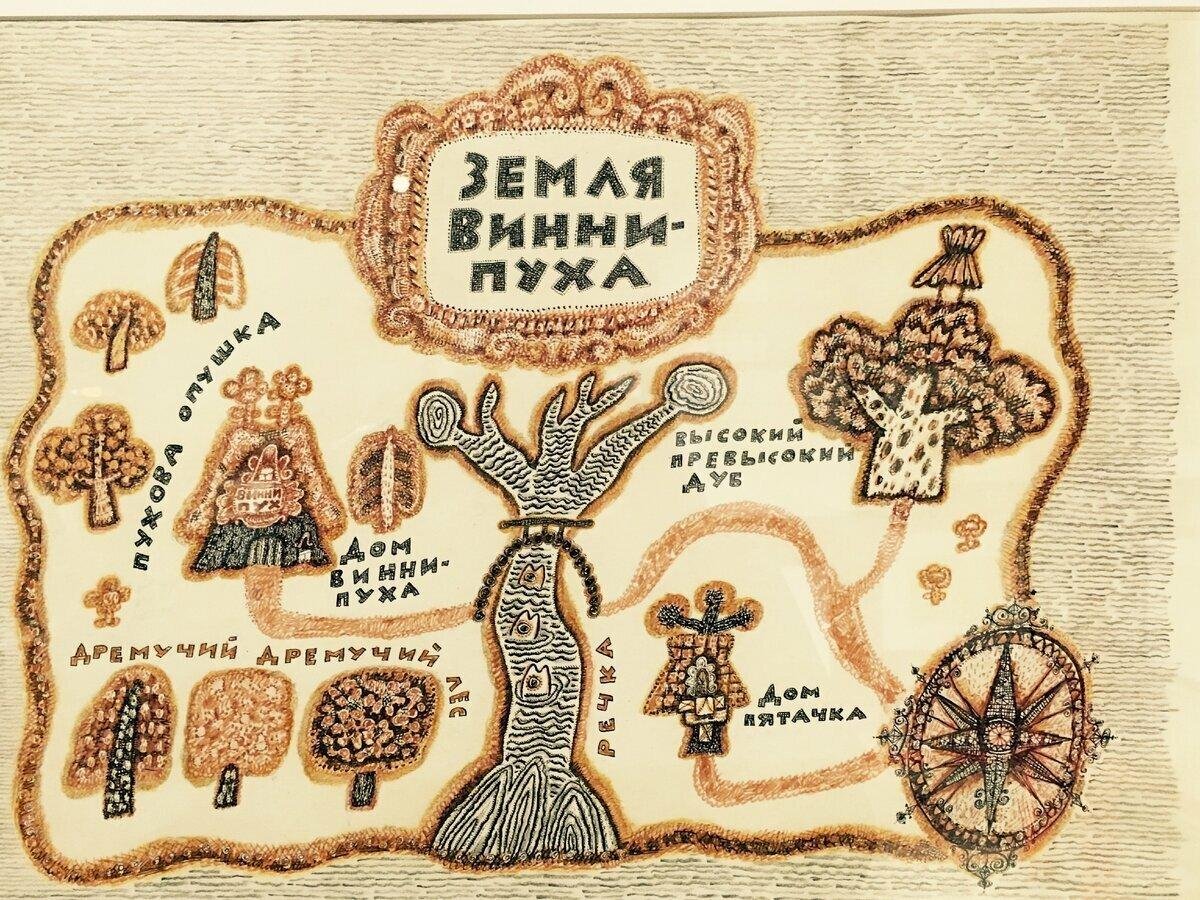 ЗЕМЛЯ
ВИННИ-
ПУХА
ПУХОВА ОПУШКА
ВИННИ
ПУХ
ДОМ
ВИННИ-
ПУХА
ВЫСОКИЙ
ПРЕВЫСОКИЙ
ДУБ
ДРЕМУЧИЙ ДРЕМУЧИЙ
ЛЕС
РЕЧКА
ДОМ
ПЯТАЧКА